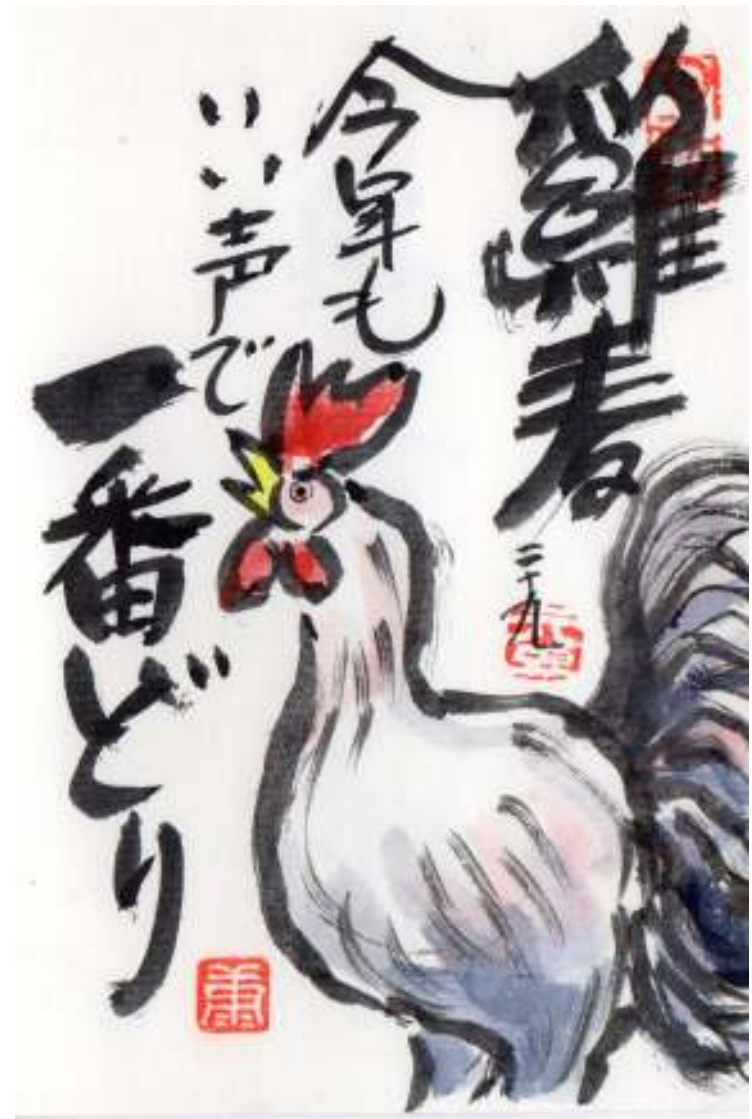 二十九
今年も
いい声で
一番どり